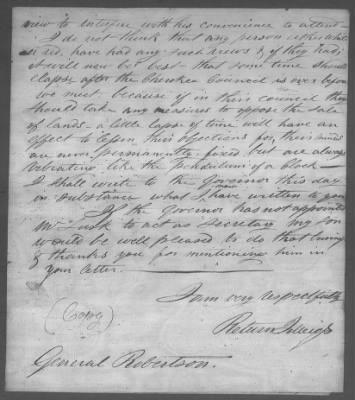 view to interfere with his convenience to attend
I do not think that any person either white
or red, have had any such views & if they had
it will now be best that some time should
elapse after the Cherokee Council is over before
we meet because if in their council they
should take any measures to oppose the sale
of lands - a little lapse of time will have an
effect to lessen their objections for, their minds
are never permanently fixed but are always
vibrating like the Pendulum of a clock -
I shall write to the Governor this day
in substance what I have written to you
If the Governor has not appointed
Mr to act as Secretary my son
would be well pleased to do that business
& thanks you for mentioning him in
your letter.
I am very respectfully
(Copy)
Return J. Meigs
General Robertson.